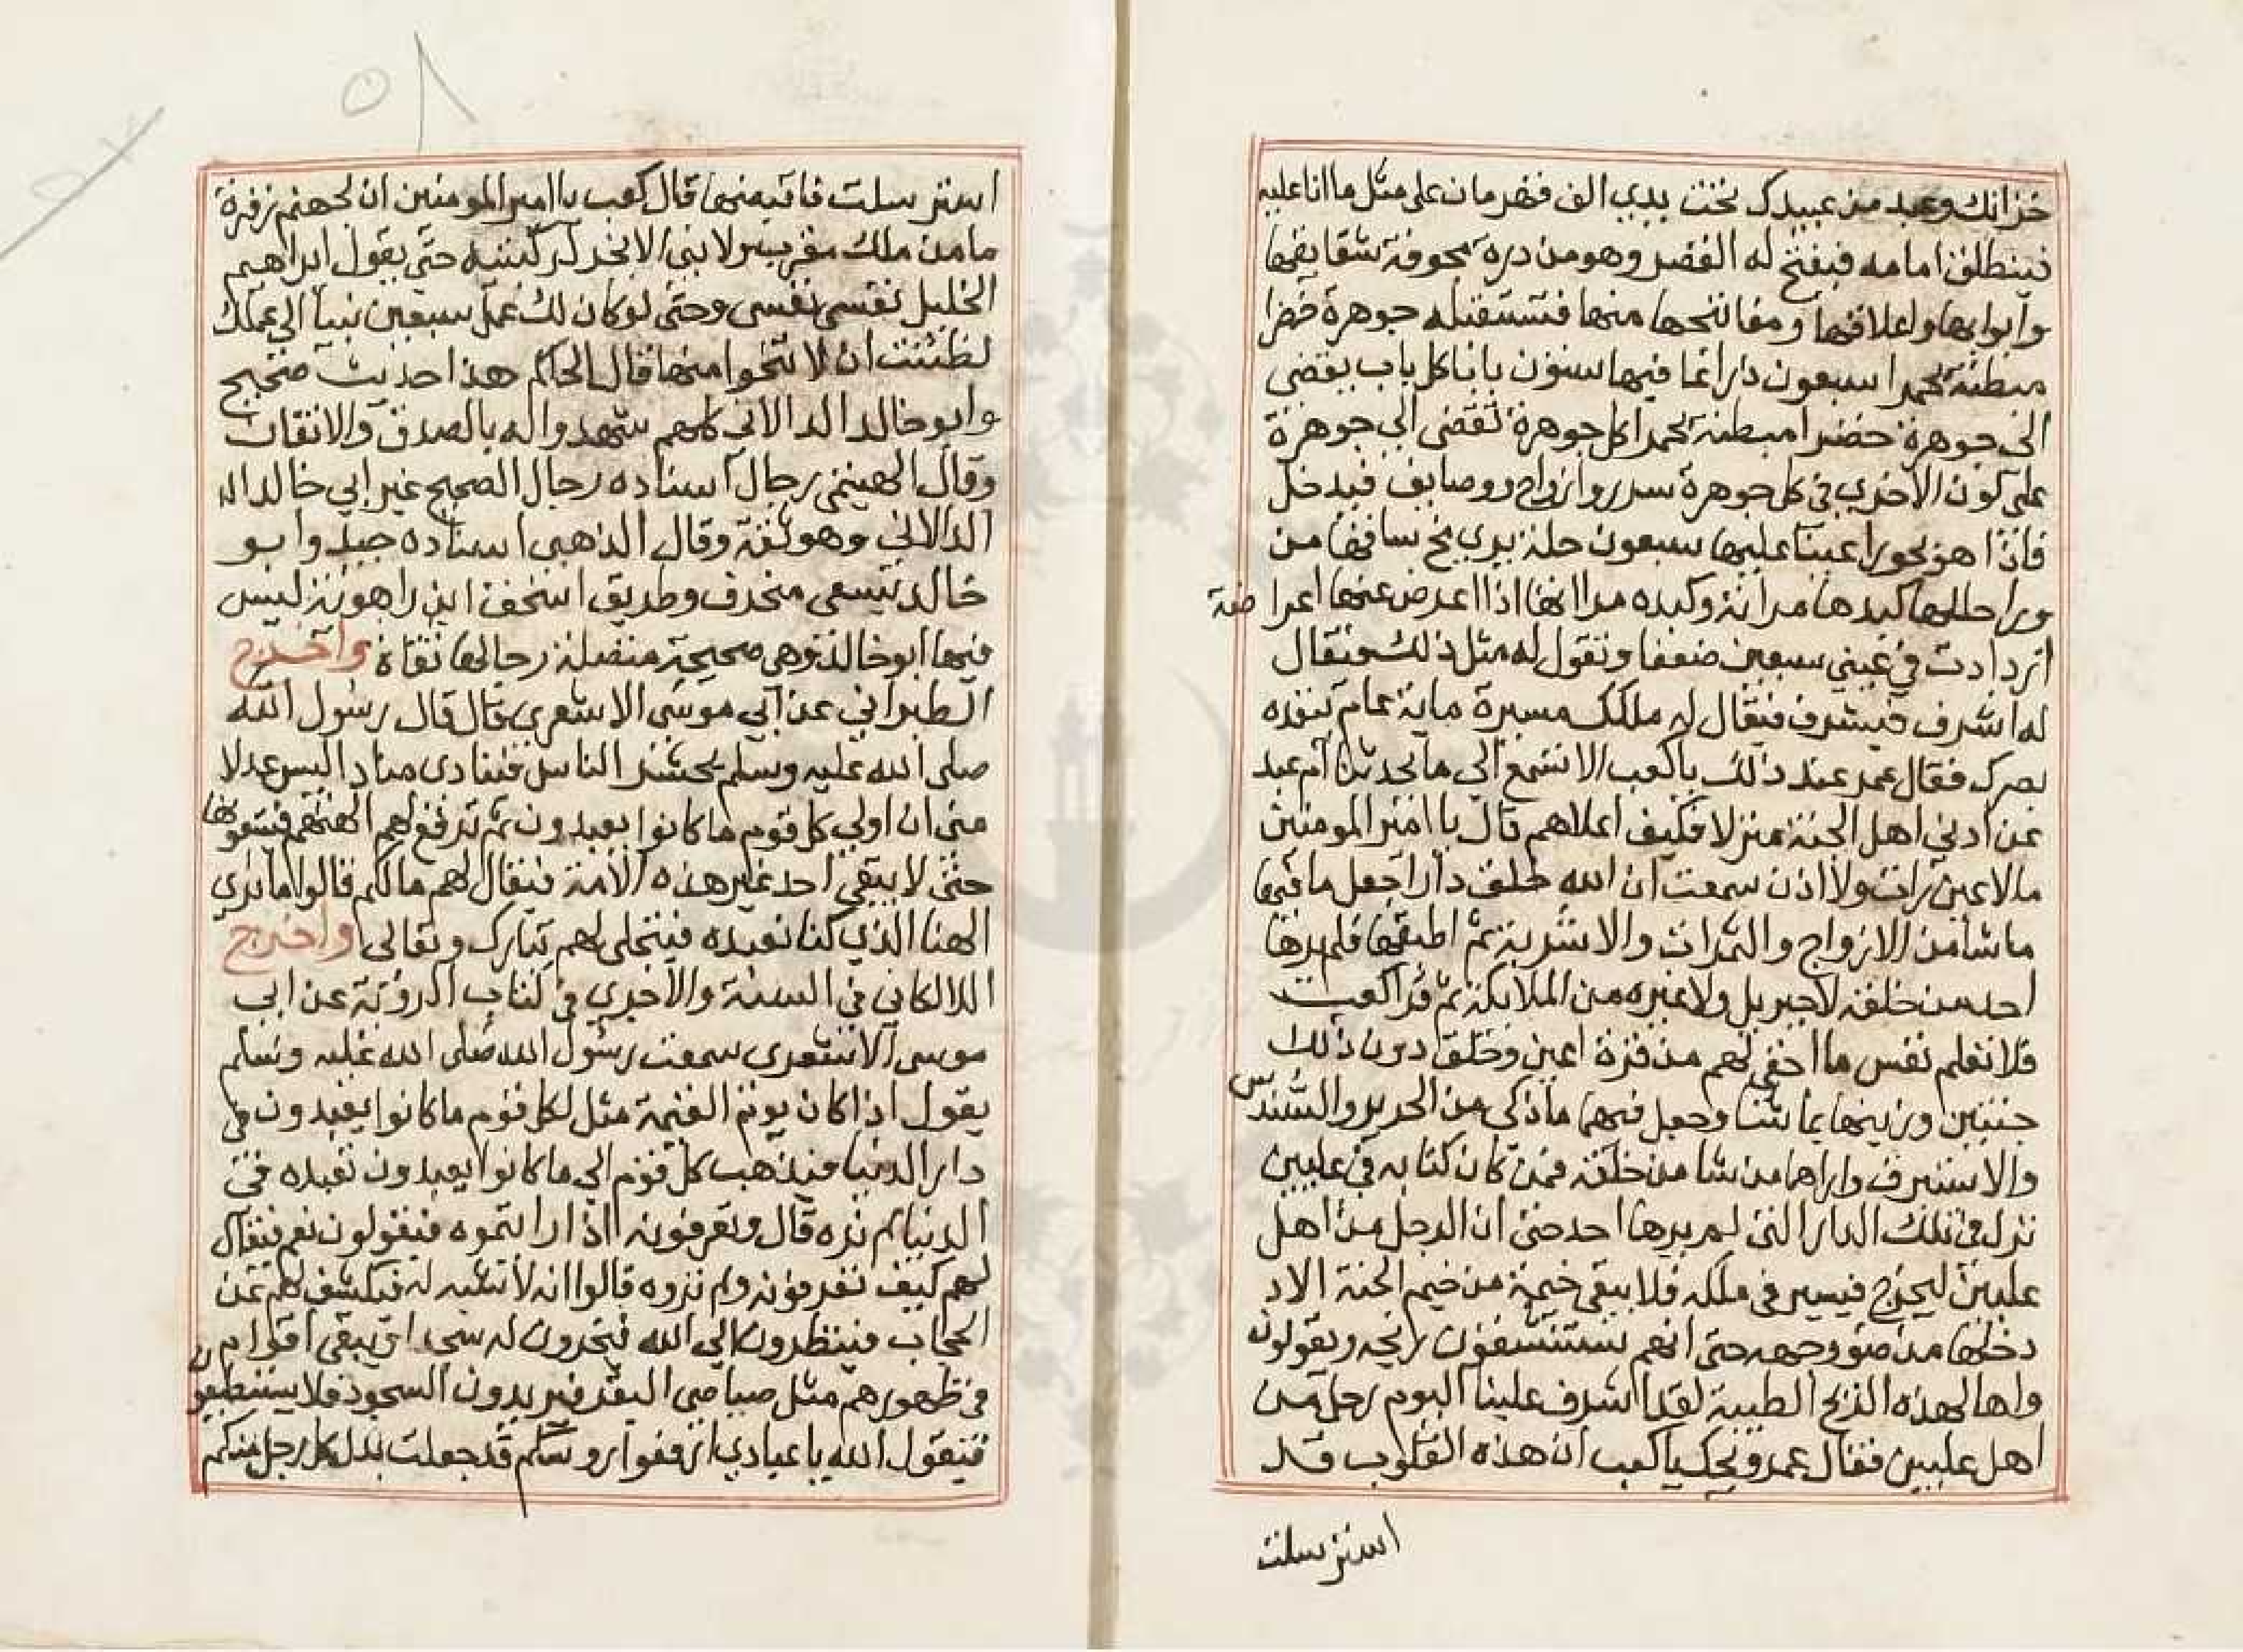 خزانك وعبد من عبيدك تحت يدي الف قهرمان على مثل ما انا عليه
فينطلق امامه فيفتح له القصر وهو من درة مجوفة سقايفها
وابوابها واغلاقها ومفاتيحها منها فتستقبله جوهرة خضرا
مبطنة بحمرا سبعون دراعا فيها ستون بابا كل باب يفضي
الى جوهرة خضرا مبطنة بحمرا كل جوهرة تفضي الى جوهرة
على لون الاخرى في كل جوهرة سرر وازواج ووصايف فيدخل
فاذا هو بحورا عينا عليها سبعون حلة يرى مخ ساقها من
ورا حللها كبدها مراته وكبده مراتها اذا اعرض عنها اعراضة
ازدادت في عيني سبعين ضعفا وتقول له مثل ذلك فيقال
له اشرف فيشرف فيقال له ملكك مسيرة ماية عام ينفذه
بصرك فقال عمر عند ذلك يا كعب الا تسمع الى ما يحدثنا ام عبد
عن ادنى اهل الجنة منزلا فكيف اعلاهم قال يا امير المومنين
مالا عين رات ولا اذن سمعت ان الله خلق دارا جعل ما فيها
ما شا من الازواج والثمرات والاشربة ثم اطبقها فلم يرها
احد من خلقه لا جبريل ولا غيره من الملايكة ثم قرا كعب
فلا تعلم نفس ما اخفي لهم من قرة اعين وخلق دون ذلك
جنتين وزينهما بما شا وجعل فيهما ما ذكر من الحرير والسندس
والاستبرق واراهما من شا من خلقه فمن كان كتابه في عليين
نزل في تلك الدار التي لم يرها احد حتى ان الرجل من اهل
عليين ليخرج فيسير في ملكه فلا يبقى خيمة من خيم الجنة الا د
دخلها من ضو وجهه حتى انهم يستنشقون ريحه ويقولون
واها لهذه الريح الطيبة لقد اشرف علينا اليوم رجل من
اهل عليين فقال عمر ويحك يا كعب ان هذه القلوب قد
استرسلت
استرسلت فاقبضها قال كعب يا امير المومنين ان لجهنم زفرة
ما من ملك مقرب ولا نبي الا يخر لركبتيه حتى يقول ابراهيم
الخليل نفسي نفسي وحتى لو كان لك عمل سبعين نبيا الى عملك
لظننت ان لا تنجوا منها قال الحاكم هذا حديث صحيح
وابو خالد الدالاني كلهم شهدوا له بالصدق والاتقان
وقال الهيتمي رجال اسناده رجال الصحيح غير ابي خالد الد
الدالاني وهو ثقة وقال الذهبي اسناده جيد وابو
خالد شيعي منحرف وطريق اسحق ابن راهوية ليس
فيها ابو خالد وهي صحيحة متصلة رجالها ثقاة واخرج
الطبراني عن ابي موسى الاشعري قال قال رسول الله
صلى الله عليه وسلم يحشر الناس فينادي مناد اليس عدلا
مني ان اولي كل قوم ما كانوا يعبدون ثم ترفع لهم الهتهم فيتبعونها
حتى لا يبقى احد غير هذه الامة فيقال لهم مالكم قالوا ما نرى
الهنا الذي كنا نعبده فيتجلى لهم تبارك وتعالى واخرج
اللالكاني في السنة والاجري في كتاب الروية عن ابي
موسى الاشعري سمعت رسول الله صلى الله عليه وسلم
يقول اذا كان يوم القيمة مثل لكل قوم ما كانوا يعبدون في
دار الدنيا فيذهب كل قوم الى ما كانوا يعبدون نعبده في
الدنيا لم نره قال وتعرفونه اذا رايتموه فيقولون نعم فيقال
لهم كيف تعرفونه ولم تروه قالوا انه لا شبيه له فيكشف لهم عن
الحجاب فينظرون الى الله فيخرون له سجدا ويبقى اقوام
في ظهورهم مثل صياصي البقر فيريدون السجود فلا يستطيعون
فيقول الله يا عبادي ارفعوا روسكم قد جعلت بدل كل رجل منكم